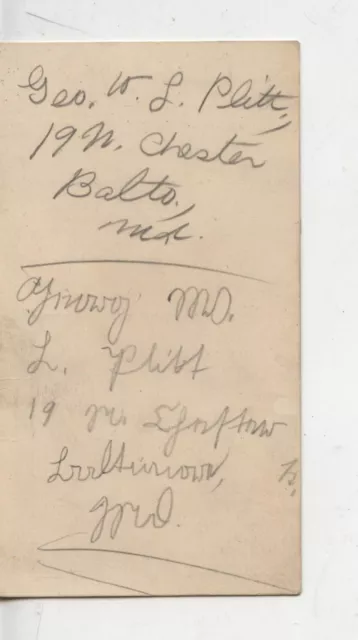 Geo. W. L. Plitt,
19 N. Chester
Balto.,
Md.
George W.
L. Plitt
19 N. Chester
Baltimore,
Md.